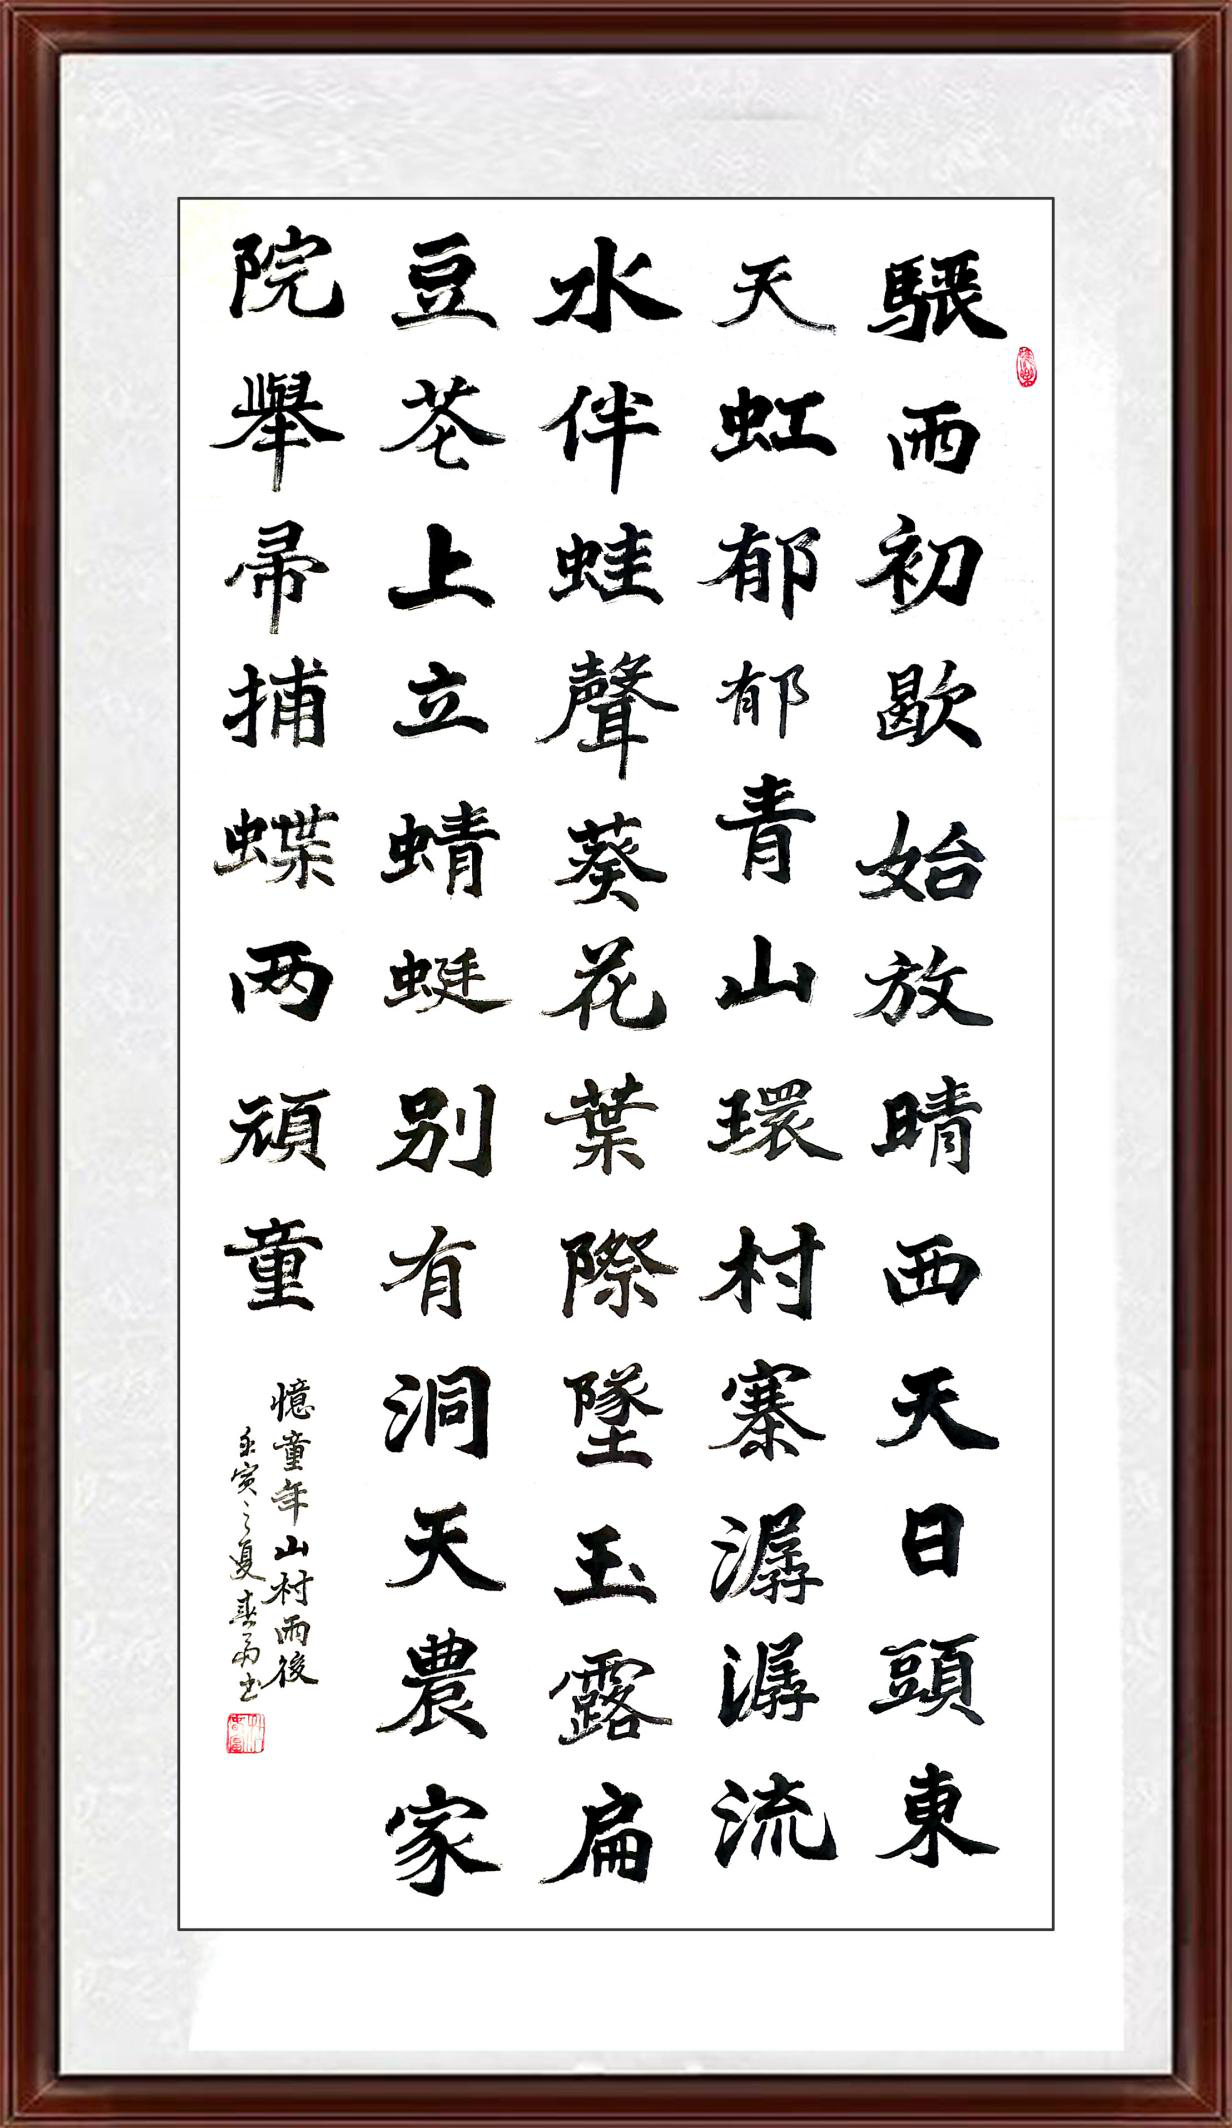 驟雨初歇始放晴西天日頭東
天虹郁郁青山環村寨潺潺流
水伴蛙聲葵花葉際墜玉露扁
豆芲上立蜻蜓別有洞天農家
院舉帚捕蝶两頑童
憶童年山村雨後
壬寅之夏